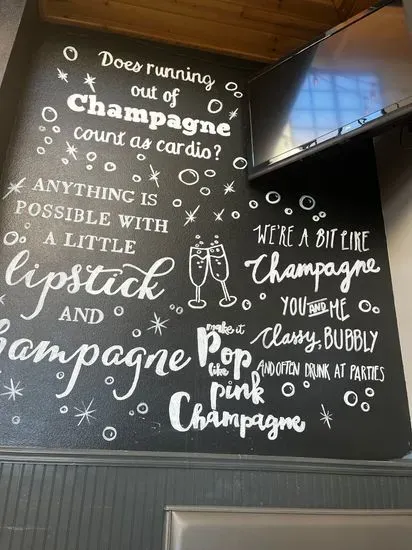 Does running
out of
Champagne
count as cardio?
ANYTHING IS
POSSIBLE WITH
A LITTLE
lipstick
AND
Champagne
WE'RE A BIT LIKE
Champagne
YOU AND ME
Classy, BUBBLY
AND OFTEN DRUNK AT PARTIES
make it
Pop
like
pink
Champagne